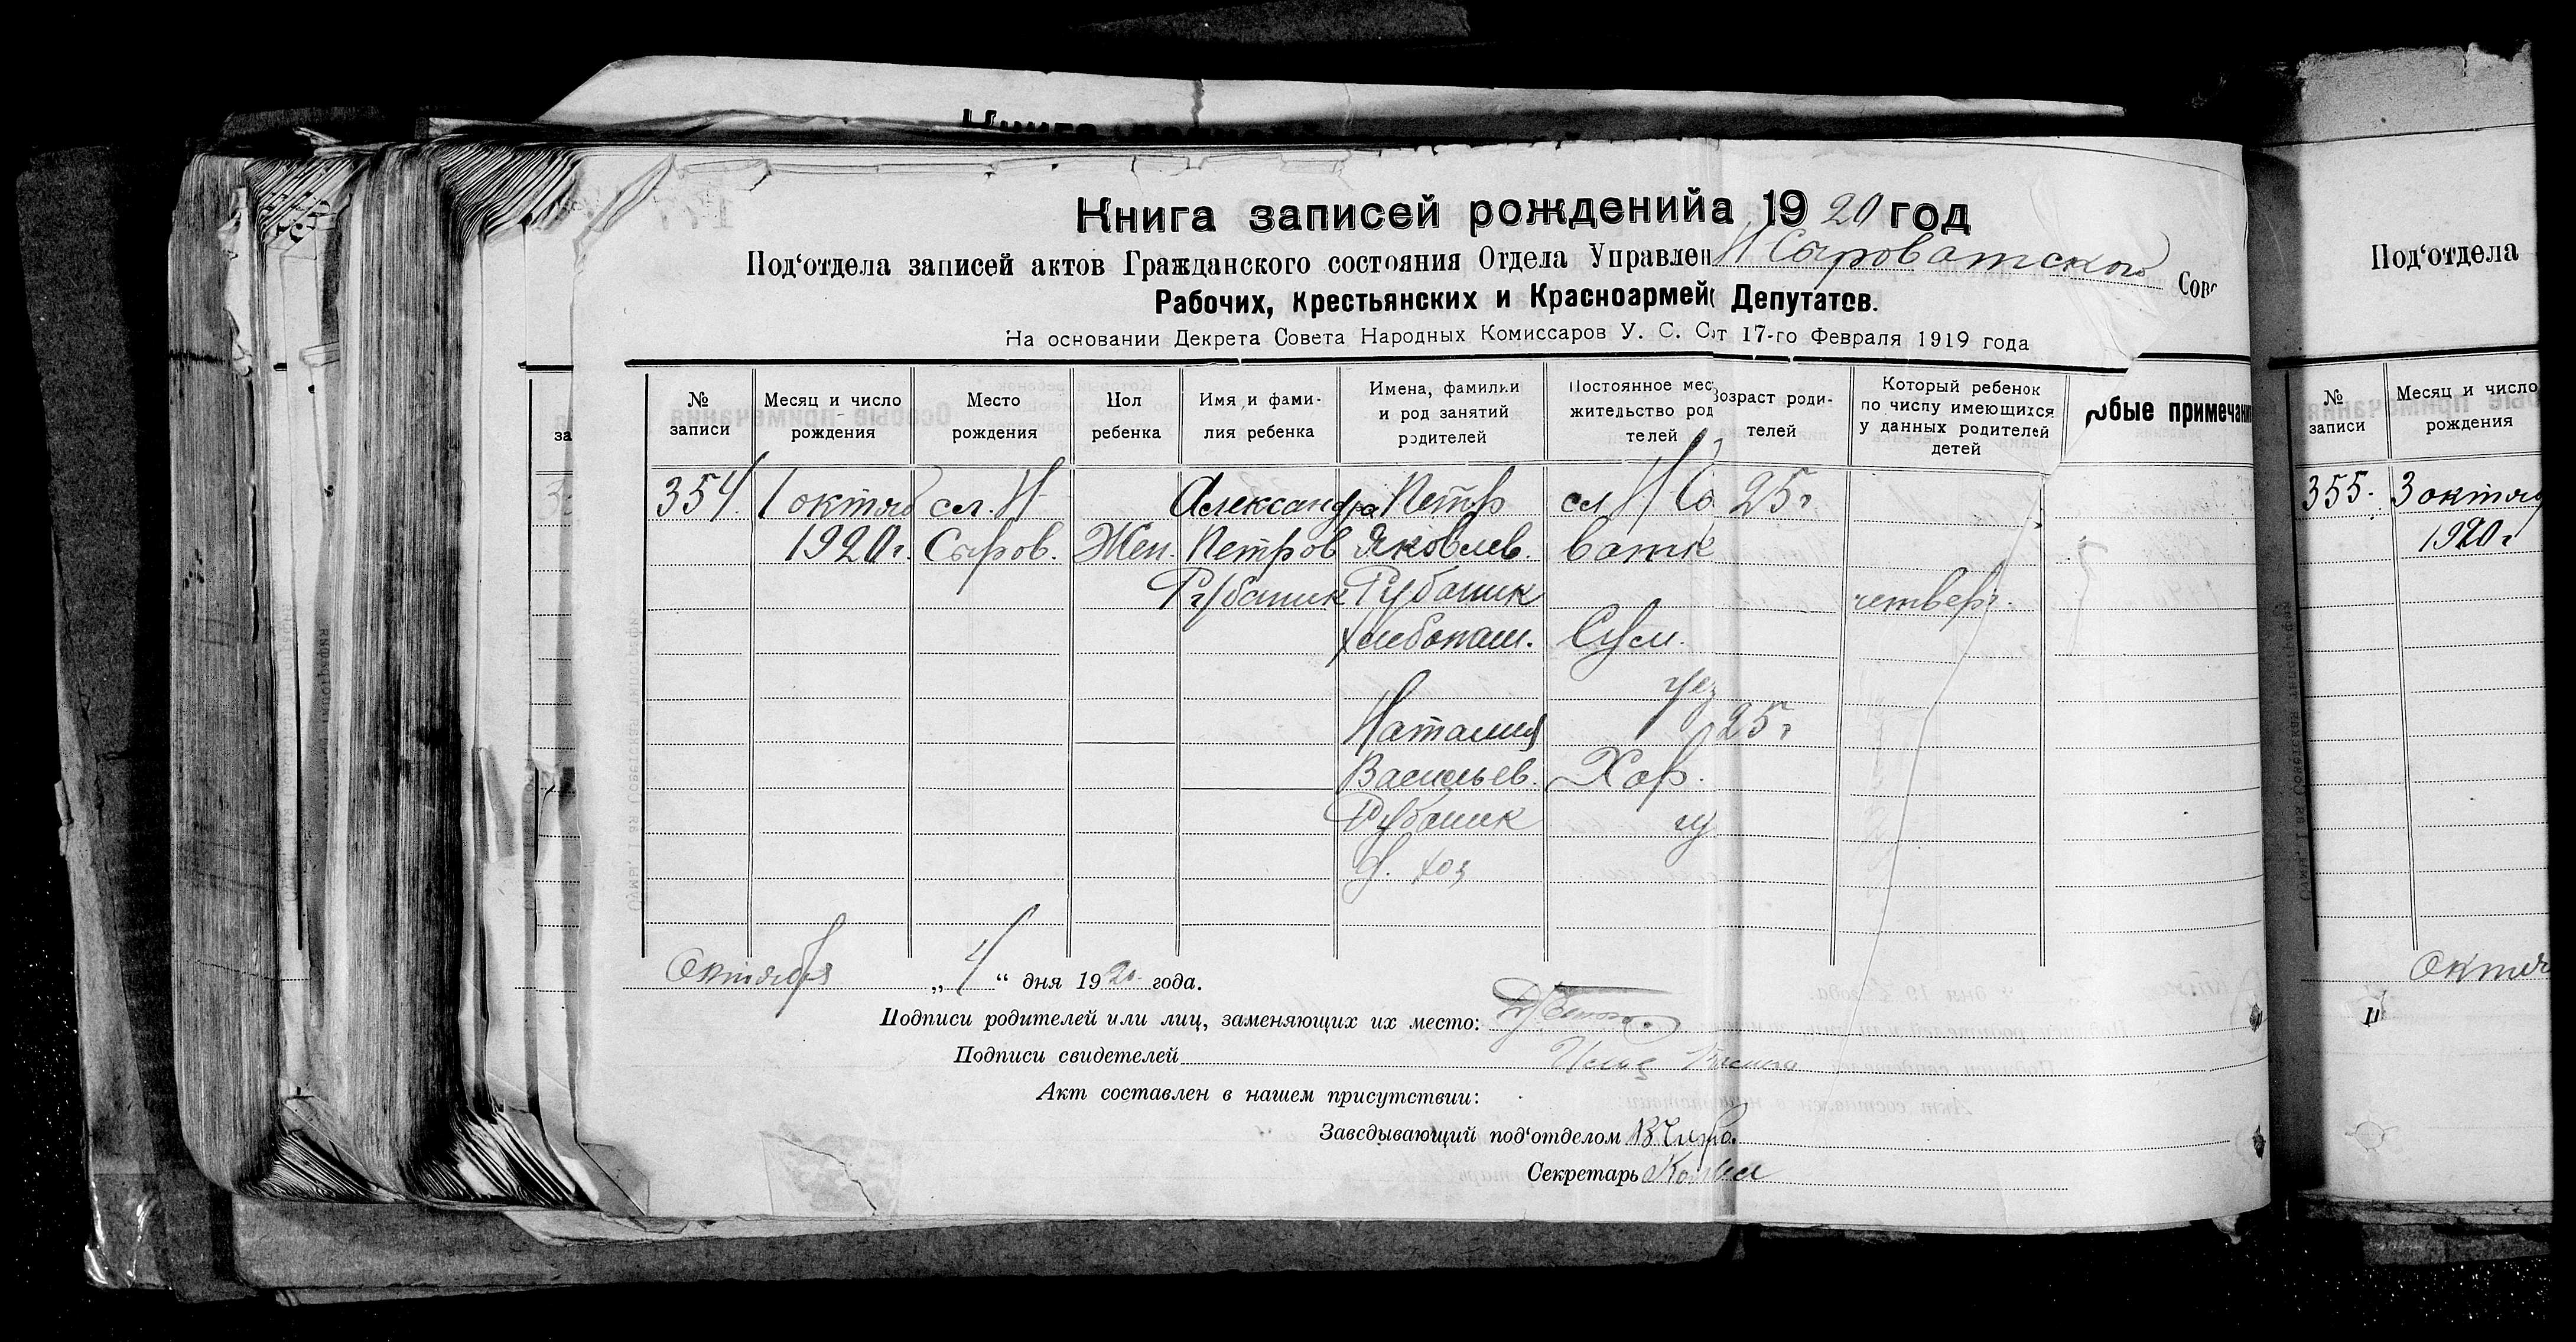 Книга записей рожденийа 1920 год
Под‘отдела записей актов Гражданского состояния Отдела Управлен Н Сыроватского Сове
Рабочих, Крестьянских и Красноармей Депутатов.
На основании Декрета Совета Народных Комиссаров У. С. С т 17-го Февраля 1919 года
№ записи
Месяц и число рождения
Место рождения
Пол ребенка
Имя и фами-
лия ребенка
Имена, фамилии
и род занятий
родителей
Постоянное мес
жительство род
телей
Возраст роди-
телей
Который ребенок
по числу имеющихся
у данных родителей
детей
обые примечани
354
1 октяб
1920г.
сл. Н
Сыров.
Жен.
Александра
Петров
Рубаник
Петр
Яковлев.
Рубаник
хлебопаш.
Наталия
Васильев.
Рубаник
д. хоз
сл Н Сы
ватк
Сум.
уез
Хар.
гу
25г
25г
четверт.
Октября „ 4 “ дня 1920 года.
Подписи родителей или лиц, заменяющих их место:
Подписи свидетелей
Акт составлен в нашем присутствии:
Заведывающий под‘отделом
Секретарь
за
Под‘отдела
№ записи
Месяц и число
рождения
355.
3 октяб
1920г
Октя
П